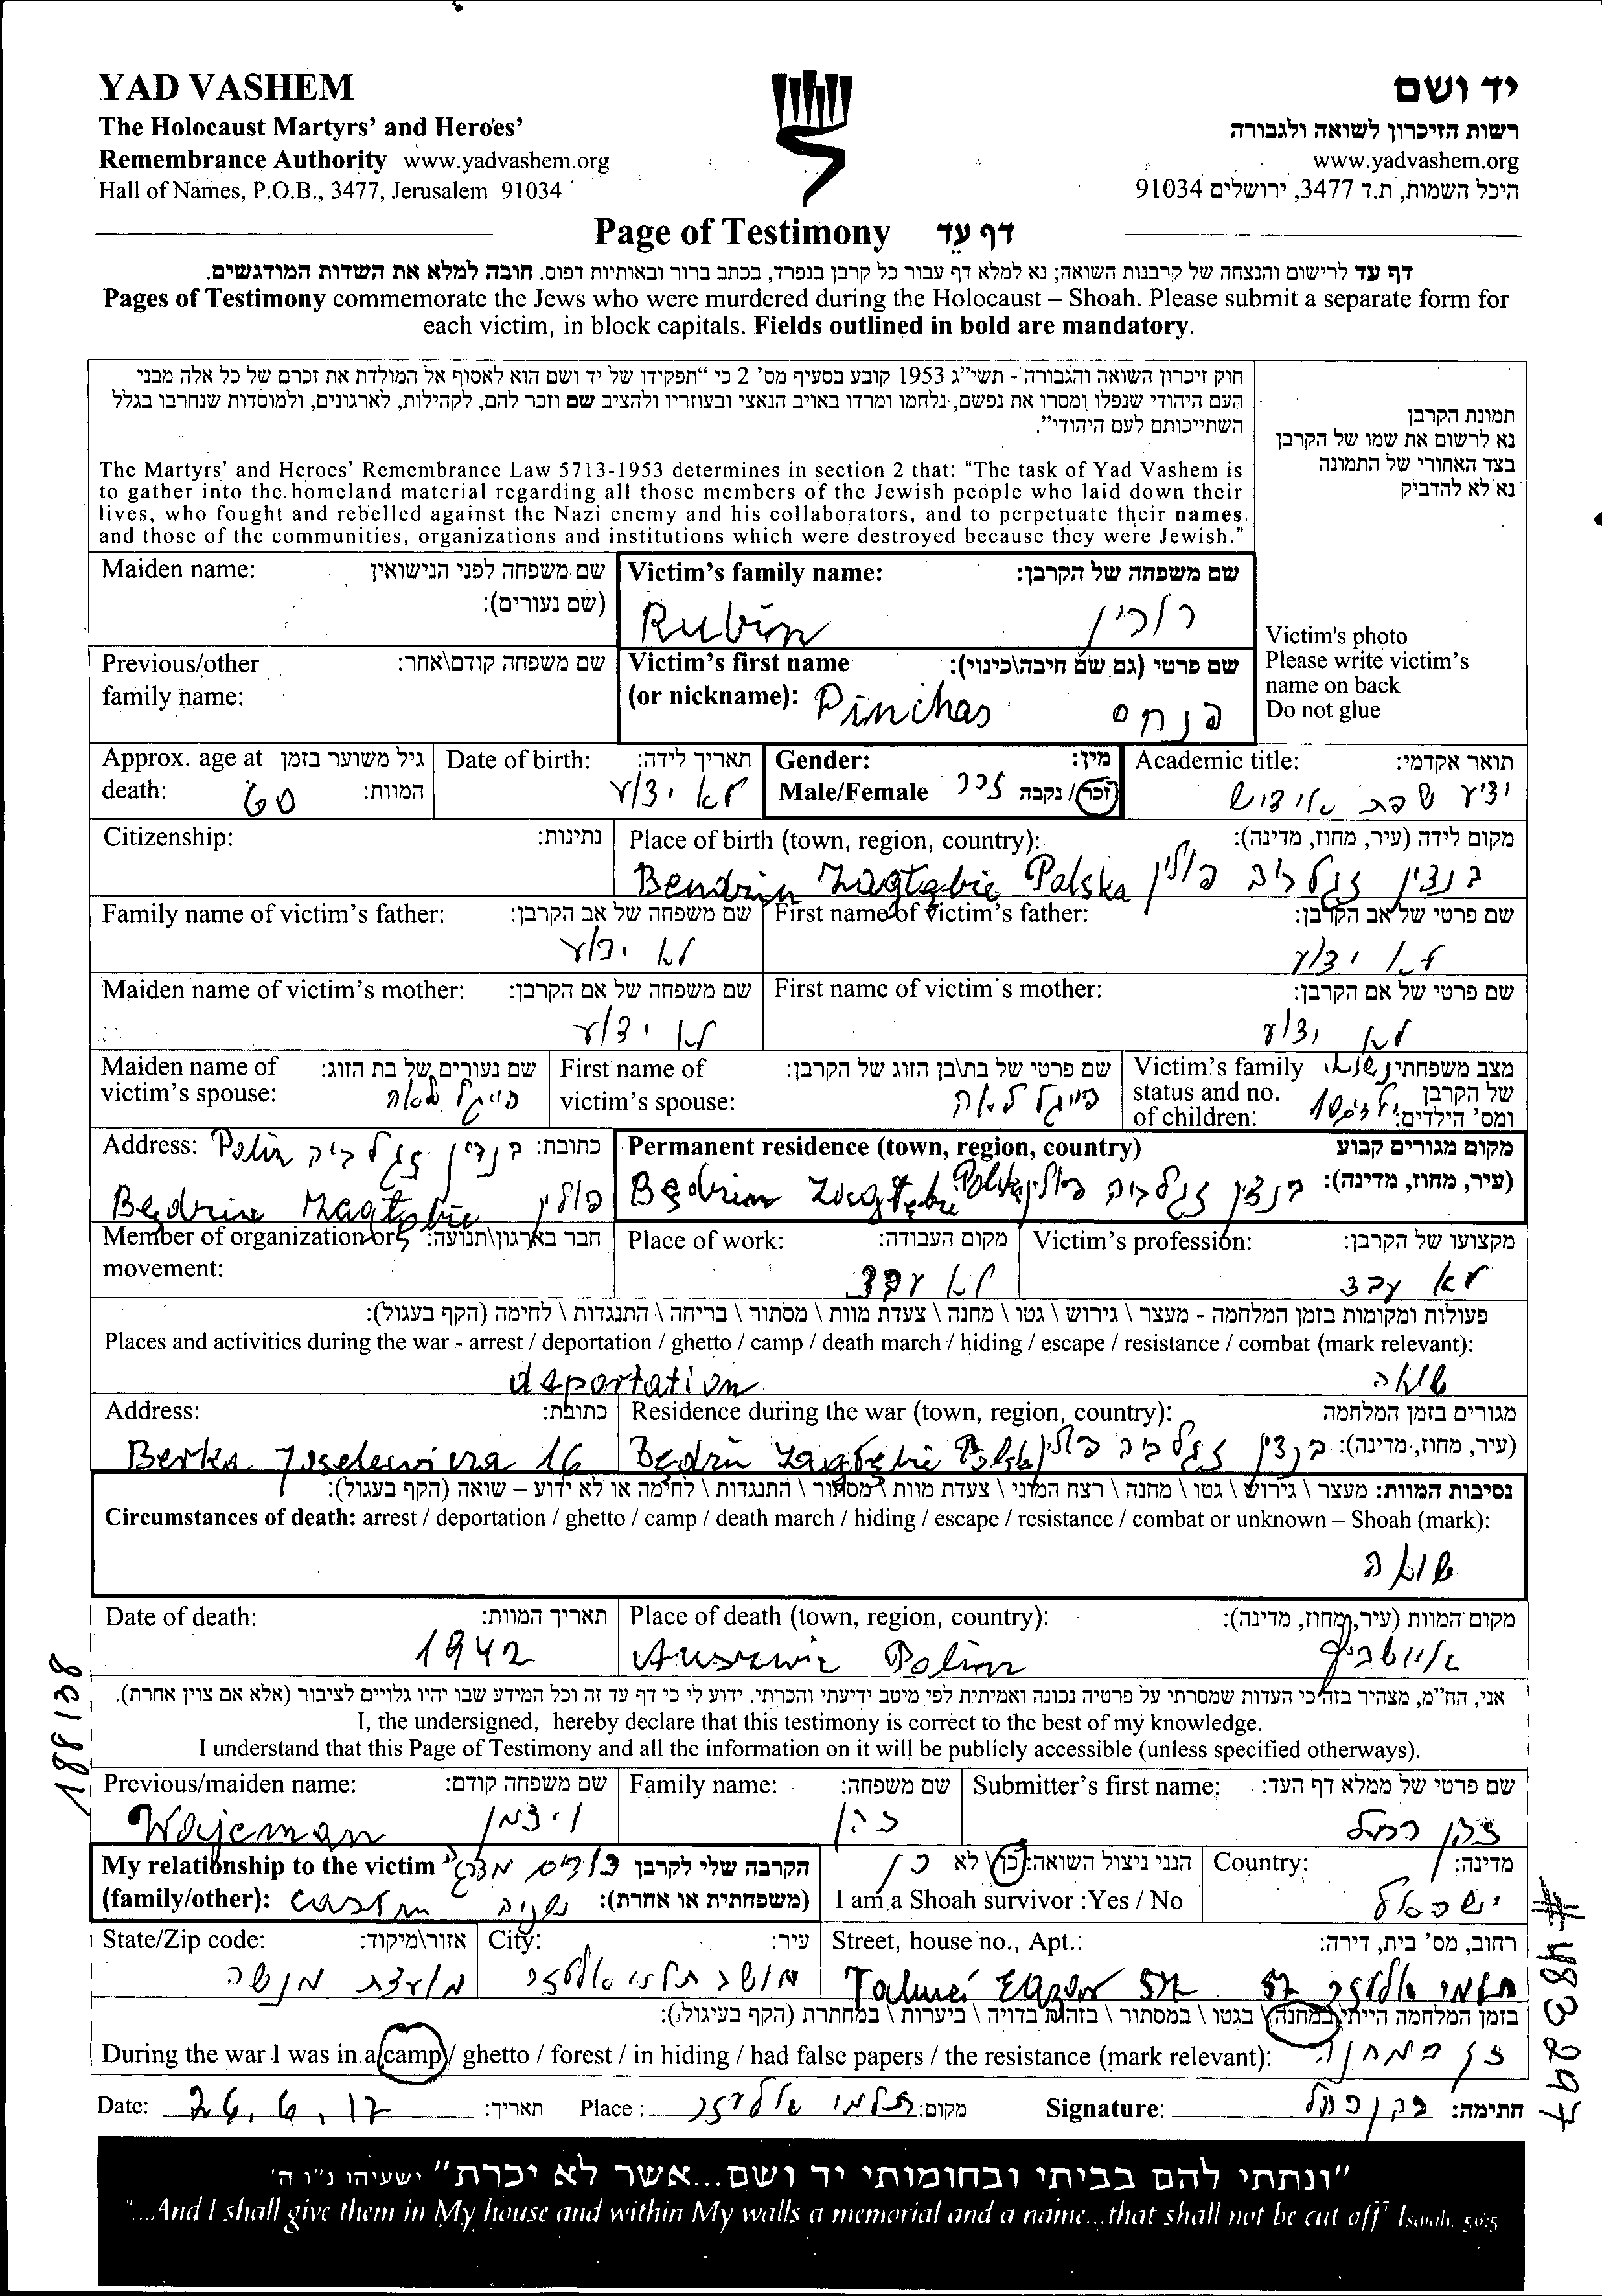 YAD VASHEM
The Holocaust Martyrs' and Heroes'
Remembrance Authority www.yadvashem.org
Hall of Names, P.O.B., 3477, Jerusalem 91034
יד ושם
רשות הזיכרון לשואה ולגבורה
www.yadvashem.org
היכל השמות, ת.ד 3477, ירושלים 91034
Page of Testimony דף עד
דף עד לרישום והנצחה של קרבנות השואה; נא למלא דף עבור כל קרבן בנפרד, בכתב ברור ובאותיות דפוס. חובה למלא את השדות המודגשים.
Pages of Testimony commemorate the Jews who were murdered during the Holocaust – Shoah. Please submit a separate form for
each victim, in block capitals. Fields outlined in bold are mandatory.
חוק זיכרון השואה והגבורה - תשי"ג 1953 קובע בסעיף מס' 2 כי "תפקידו של יד ושם הוא לאסוף אל המולדת את זכרם של כל אלה מבני
העם היהודי שנפלו ומסרו את נפשם, נלחמו ומרדו באויב הנאצי ובעוזריו ולהציב שם וזכר להם, לקהילות, לארגונים, ולמוסדות שנחרבו בגלל
השתייכותם לעם היהודי".
The Martyrs' and Heroes' Remembrance Law 5713-1953 determines in section 2 that: "The task of Yad Vashem is
to gather into the homeland material regarding all those members of the Jewish people who laid down their
lives, who fought and rebelled against the Nazi enemy and his collaborators, and to perpetuate their names
and those of the communities, organizations and institutions which were destroyed because they were Jewish."
תמונת הקרבן
נא לרשום את שמו של הקרבן
בצד האחורי של התמונה
נא לא להדביק
Victim's photo
Please write victim's
name on back
Do not glue
Maiden name: שם משפחה לפני הנישואין
(שם נעורים):
Victim's family name: שם משפחה של הקרבן:
Rubin רובין
Previous/other שם משפחה קודם\אחר:
family name:
Victim's first name שם פרטי (גם שם חיבה\כינוי):
(or nickname): Pinchas פנחס
Approx. age at גיל משוער בזמן
death: 60 המוות:
Date of birth: תאריך לידה:
לא ידוע
Gender: מין:
Male/Female זכר זכר / נקבה
Academic title: תואר אקדמי:
שפת אידיש
Citizenship: נתינות:
Place of birth (town, region, country): מקום לידה (עיר, מחוז, מדינה):
Bendzin Zagłębie Polska בנדין זגלביה פולין
Family name of victim's father: שם משפחה של אב הקרבן:
לא ידוע
First name of victim's father: שם פרטי של אב הקרבן:
לא ידוע
Maiden name of victim's mother: שם משפחה של אם הקרבן:
לא ידוע
First name of victim's mother: שם פרטי של אם הקרבן:
לא ידוע
Maiden name of שם נעורים של בת הזוג:
victim's spouse: פייגל לאה
First name of שם פרטי של בת\בן הזוג של הקרבן:
victim's spouse: פייגל לאה
Victim's family מצב משפחתי נשואי
status and no. של הקרבן
of children: ומס' הילדים: 10 ילדים
Address: Polin כתובת: בנדין זגלביה
Będzin Zagłębie פולין
Permanent residence (town, region, country) מקום מגורים קבוע
(עיר, מחוז, מדינה): Będzin Zagłębie Polska בנדין זגלביה פולין
Member of organization or חבר בארגון\תנועה:
movement:
Place of work: מקום העבודה:
לא עבד
Victim's profession: מקצועו של הקרבן:
לא עבד
פעולות ומקומות בזמן המלחמה - מעצר \ גירוש \ גטו \ מחנה \ צעדת מוות \ מסתור \ בריחה \ התנגדות \ לחימה (הקף בעגול):
Places and activities during the war - arrest / deportation / ghetto / camp / death march / hiding / escape / resistance / combat (mark relevant):
deportation שואה
Address: כתובת:
Berka Joselewicza 16
Residence during the war (town, region, country): מגורים בזמן המלחמה
(עיר, מחוז, מדינה): Będzin Zagłębie Polska בנדין זגלביה פולין
נסיבות המוות: מעצר \ גירוש \ גטו \ מחנה \ רצח המוני \ צעדת מוות \ מסתור \ התנגדות \ לחימה או לא ידוע – שואה (הקף בעגול):
Circumstances of death: arrest / deportation / ghetto / camp / death march / hiding / escape / resistance / combat or unknown – Shoah (mark):
שואה
Date of death: תאריך המוות:
1942
Place of death (town, region, country): מקום המוות (עיר, מחוז, מדינה):
Polin
אני, הח"מ, מצהיר בזה כי העדות שמסרתי על פרטיה נכונה ואמיתית לפי מיטב ידיעתי והכרתי. ידוע לי כי דף עד זה וכל המידע שבו יהיו גלויים לציבור (אלא אם צוין אחרת).
I, the undersigned, hereby declare that this testimony is correct to the best of my knowledge.
I understand that this Page of Testimony and all the information on it will be publicly accessible (unless specified otherways).
Previous/maiden name: שם משפחה קודם:
Wajcman ויצמן
Family name: שם משפחה:
כהן
Submitter's first name: שם פרטי של ממלא דף העד:
כהן רחל
My relationship to the victim הקרבה שלי לקרבן
(family/other): (משפחתית או אחרת):
הנני ניצול השואה: כן \ לא כן
I am a Shoah survivor :Yes / No
Country: מדינה:
ישראל
State/Zip code: אזור\מיקוד:
מועצת מנשה
City: עיר:
מושב תלמי אלעזר
Street, house no., Apt.: רחוב, מס' בית, דירה:
Talmei Elazar 52 תלמי אלעזר 52
בזמן המלחמה הייתי במחנה \ בגטו \ במסתור \ בזהות בדויה \ ביערות \ במחתרת (הקף בעיגול):
During the war I was in a camp / ghetto / forest / in hiding / had false papers / the resistance (mark relevant): כן במחנה
Date: 26.6.12 תאריך: Place : תלמי אלעזר מקום: Signature: כהן רחל חתימה:
"ונתתי להם בביתי ובחומותי יד ושם...אשר לא יכרת" ישעיהו נ"ו ה'
"...And I shall give them in My house and within My walls a memorial and a name...that shall not be cut off" Isaiah. 56:5
188138
#483297